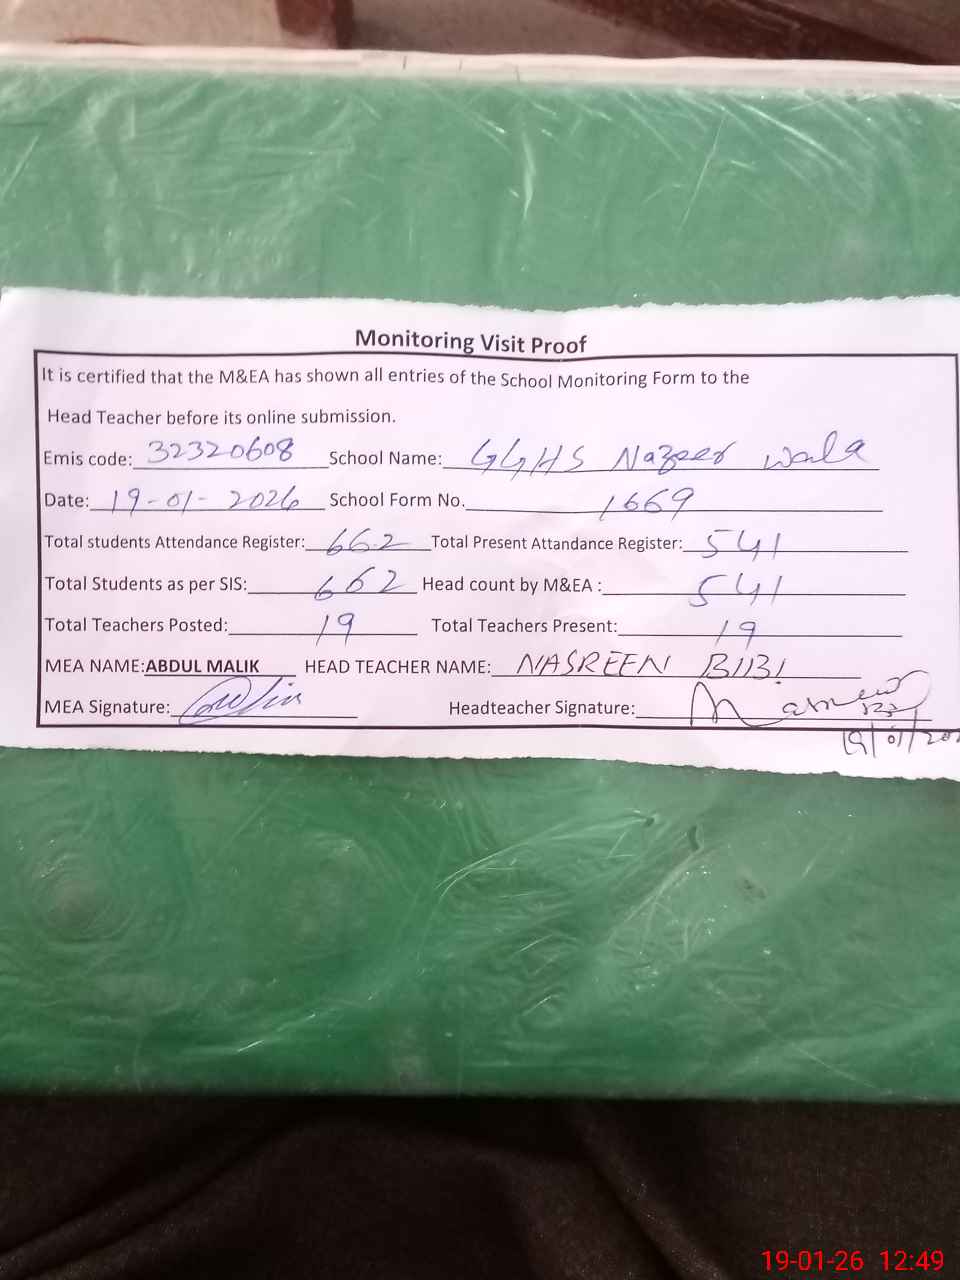 Monitoring Visit Proof
It is certified that the M&EA has shown all entries of the School Monitoring Form to the
Head Teacher before its online submission.
Emis code: 32320608 School Name: GGHS Nazeer Wala
Date: 19-01-2026 School Form No. 1669
Total students Attendance Register: 662 Total Present Attandance Register: 541
Total Students as per SIS: 662 Head count by M&EA : 541
Total Teachers Posted: 19 Total Teachers Present: 19
MEA NAME:ABDUL MALIK HEAD TEACHER NAME: NASREEN BIBI
MEA Signature: Headteacher Signature:
19/01/202
19-01-26 12:49